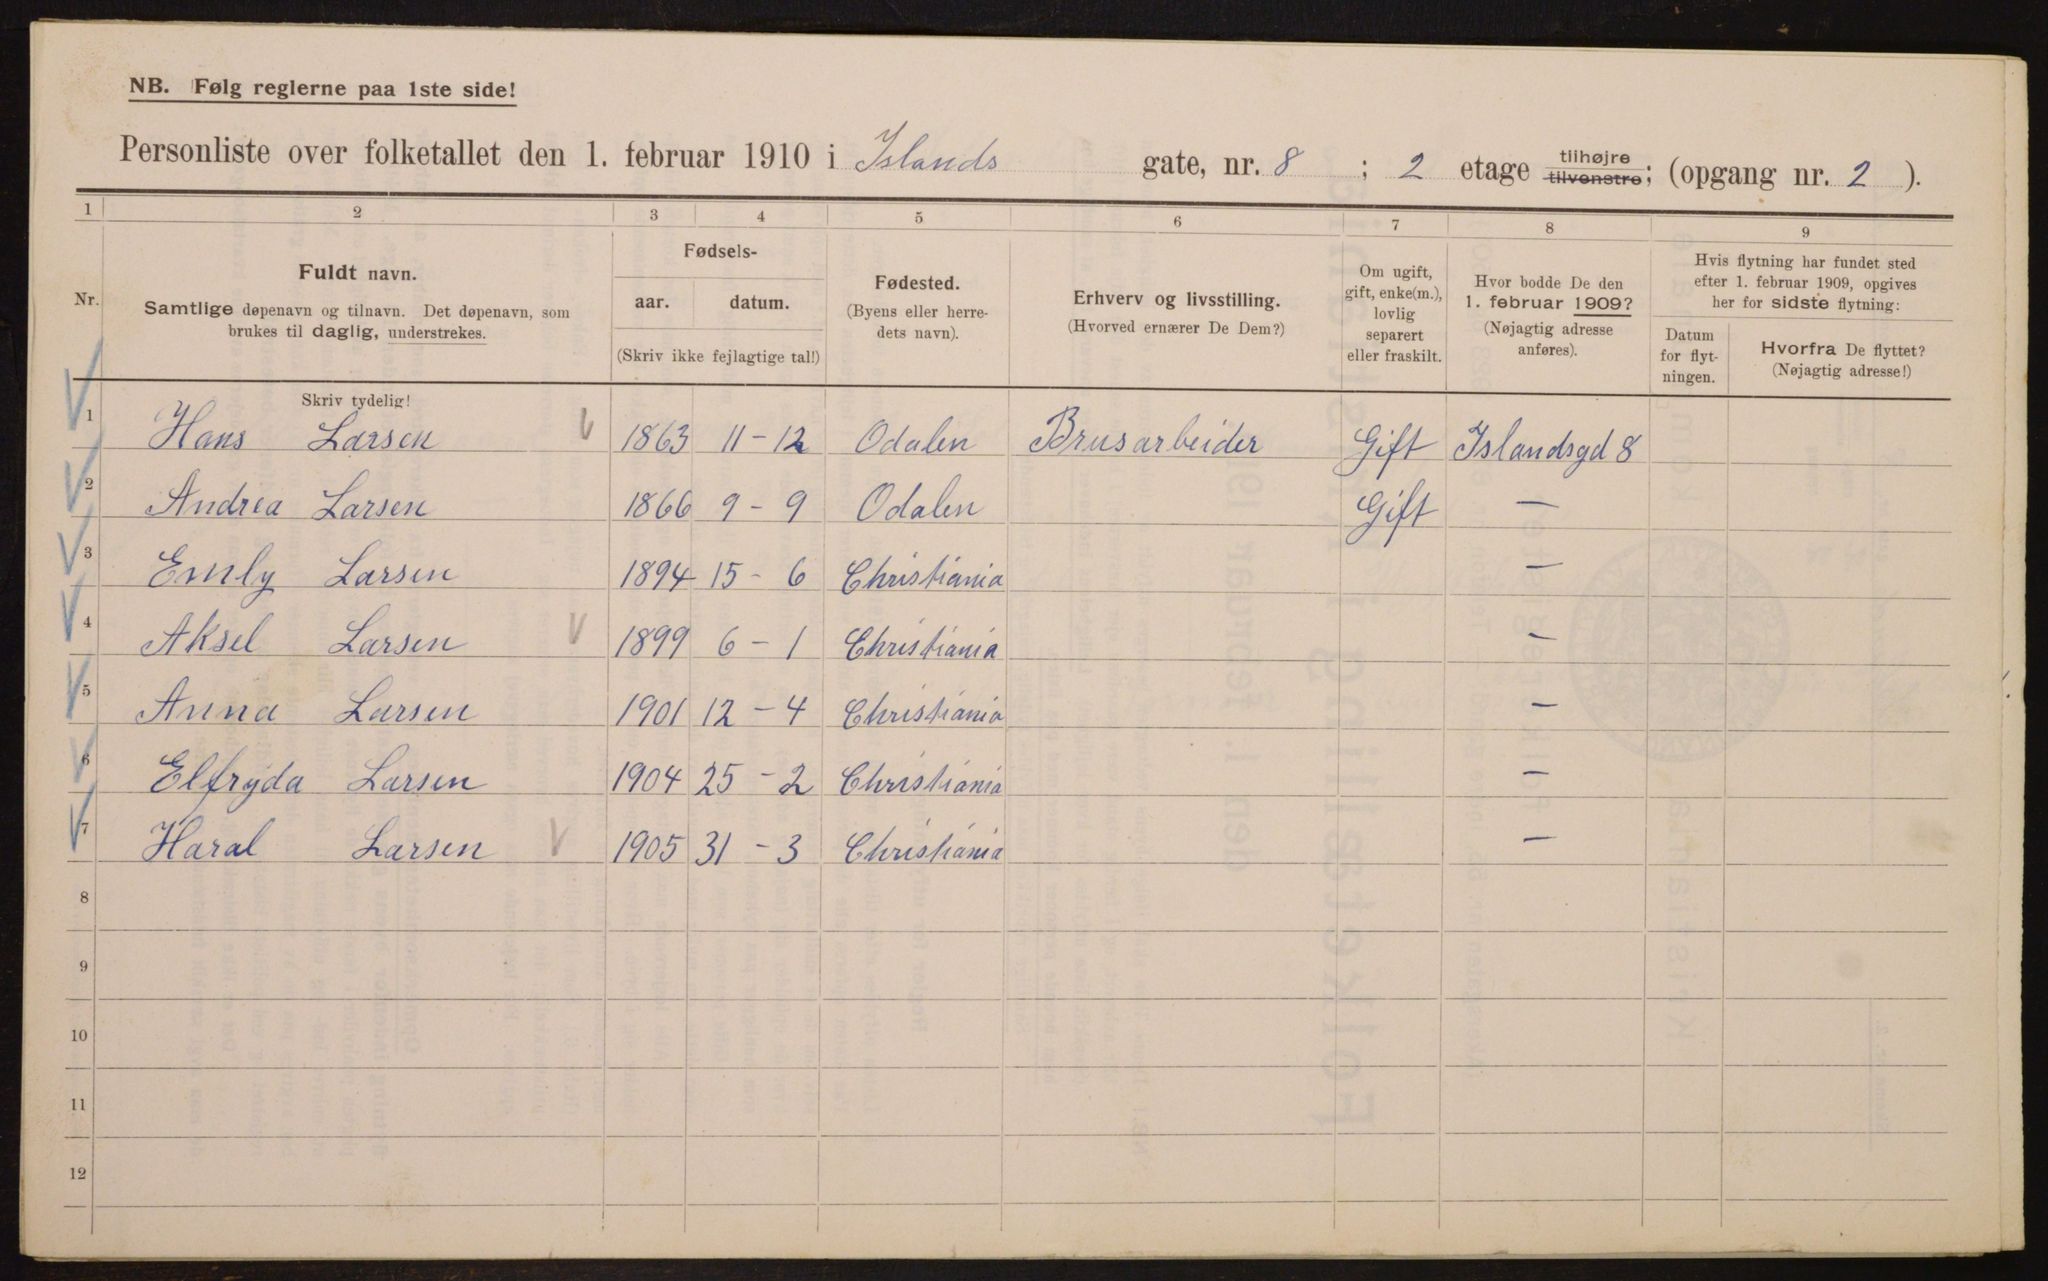 NB. Følg reglerne paa 1ste side!
Personliste over folketallet den 1. februar 1910 i Islands gate, nr. 8 ; 2 etage tilhøjre tilvenstre; (opgang nr. 2 ).
1 2 3 4 5 6 7 8 9
Nr.
Fuldt navn.
Samtlige døpenavn og tilnavn. Det døpenavn, som
brukes til daglig, understrekes.
Skriv tydelig!
Fødsels-
aar. datum.
(Skriv ikke fejlagtige tal!)
Fødested.
(Byens eller herre-
dets navn).
Erhverv og livsstilling.
(Hvorved ernærer De Dem?)
Om ugift,
gift, enke(m.),
lovlig
separert
eller fraskilt.
Hvor bodde De den
1. februar 1909?
(Nøjagtig adresse
anføres).
Hvis flytning har fundet sted
efter 1. februar 1909, opgives
her for sidste flytning:
Datum
for flyt-
ningen.
Hvorfra De flyttet?
(Nøjagtig adresse!)
1 Hans Larsen 1863 11-12 Odalen Brusarbeider Gift Islandsgd 8
2 Andrea Larsen 1866 9-9 Odalen Gift —
3 Emly Larsen 1894 15-6 Christiania —
4 Aksel Larsen 1899 6-1 Christiania —
5 Anna Larsen 1901 12-4 Christiania —
6 Elfryda Larsen 1904 25-2 Christiania —
7 Haral Larsen 1905 31-3 Christiania —
8
9
10
11
12